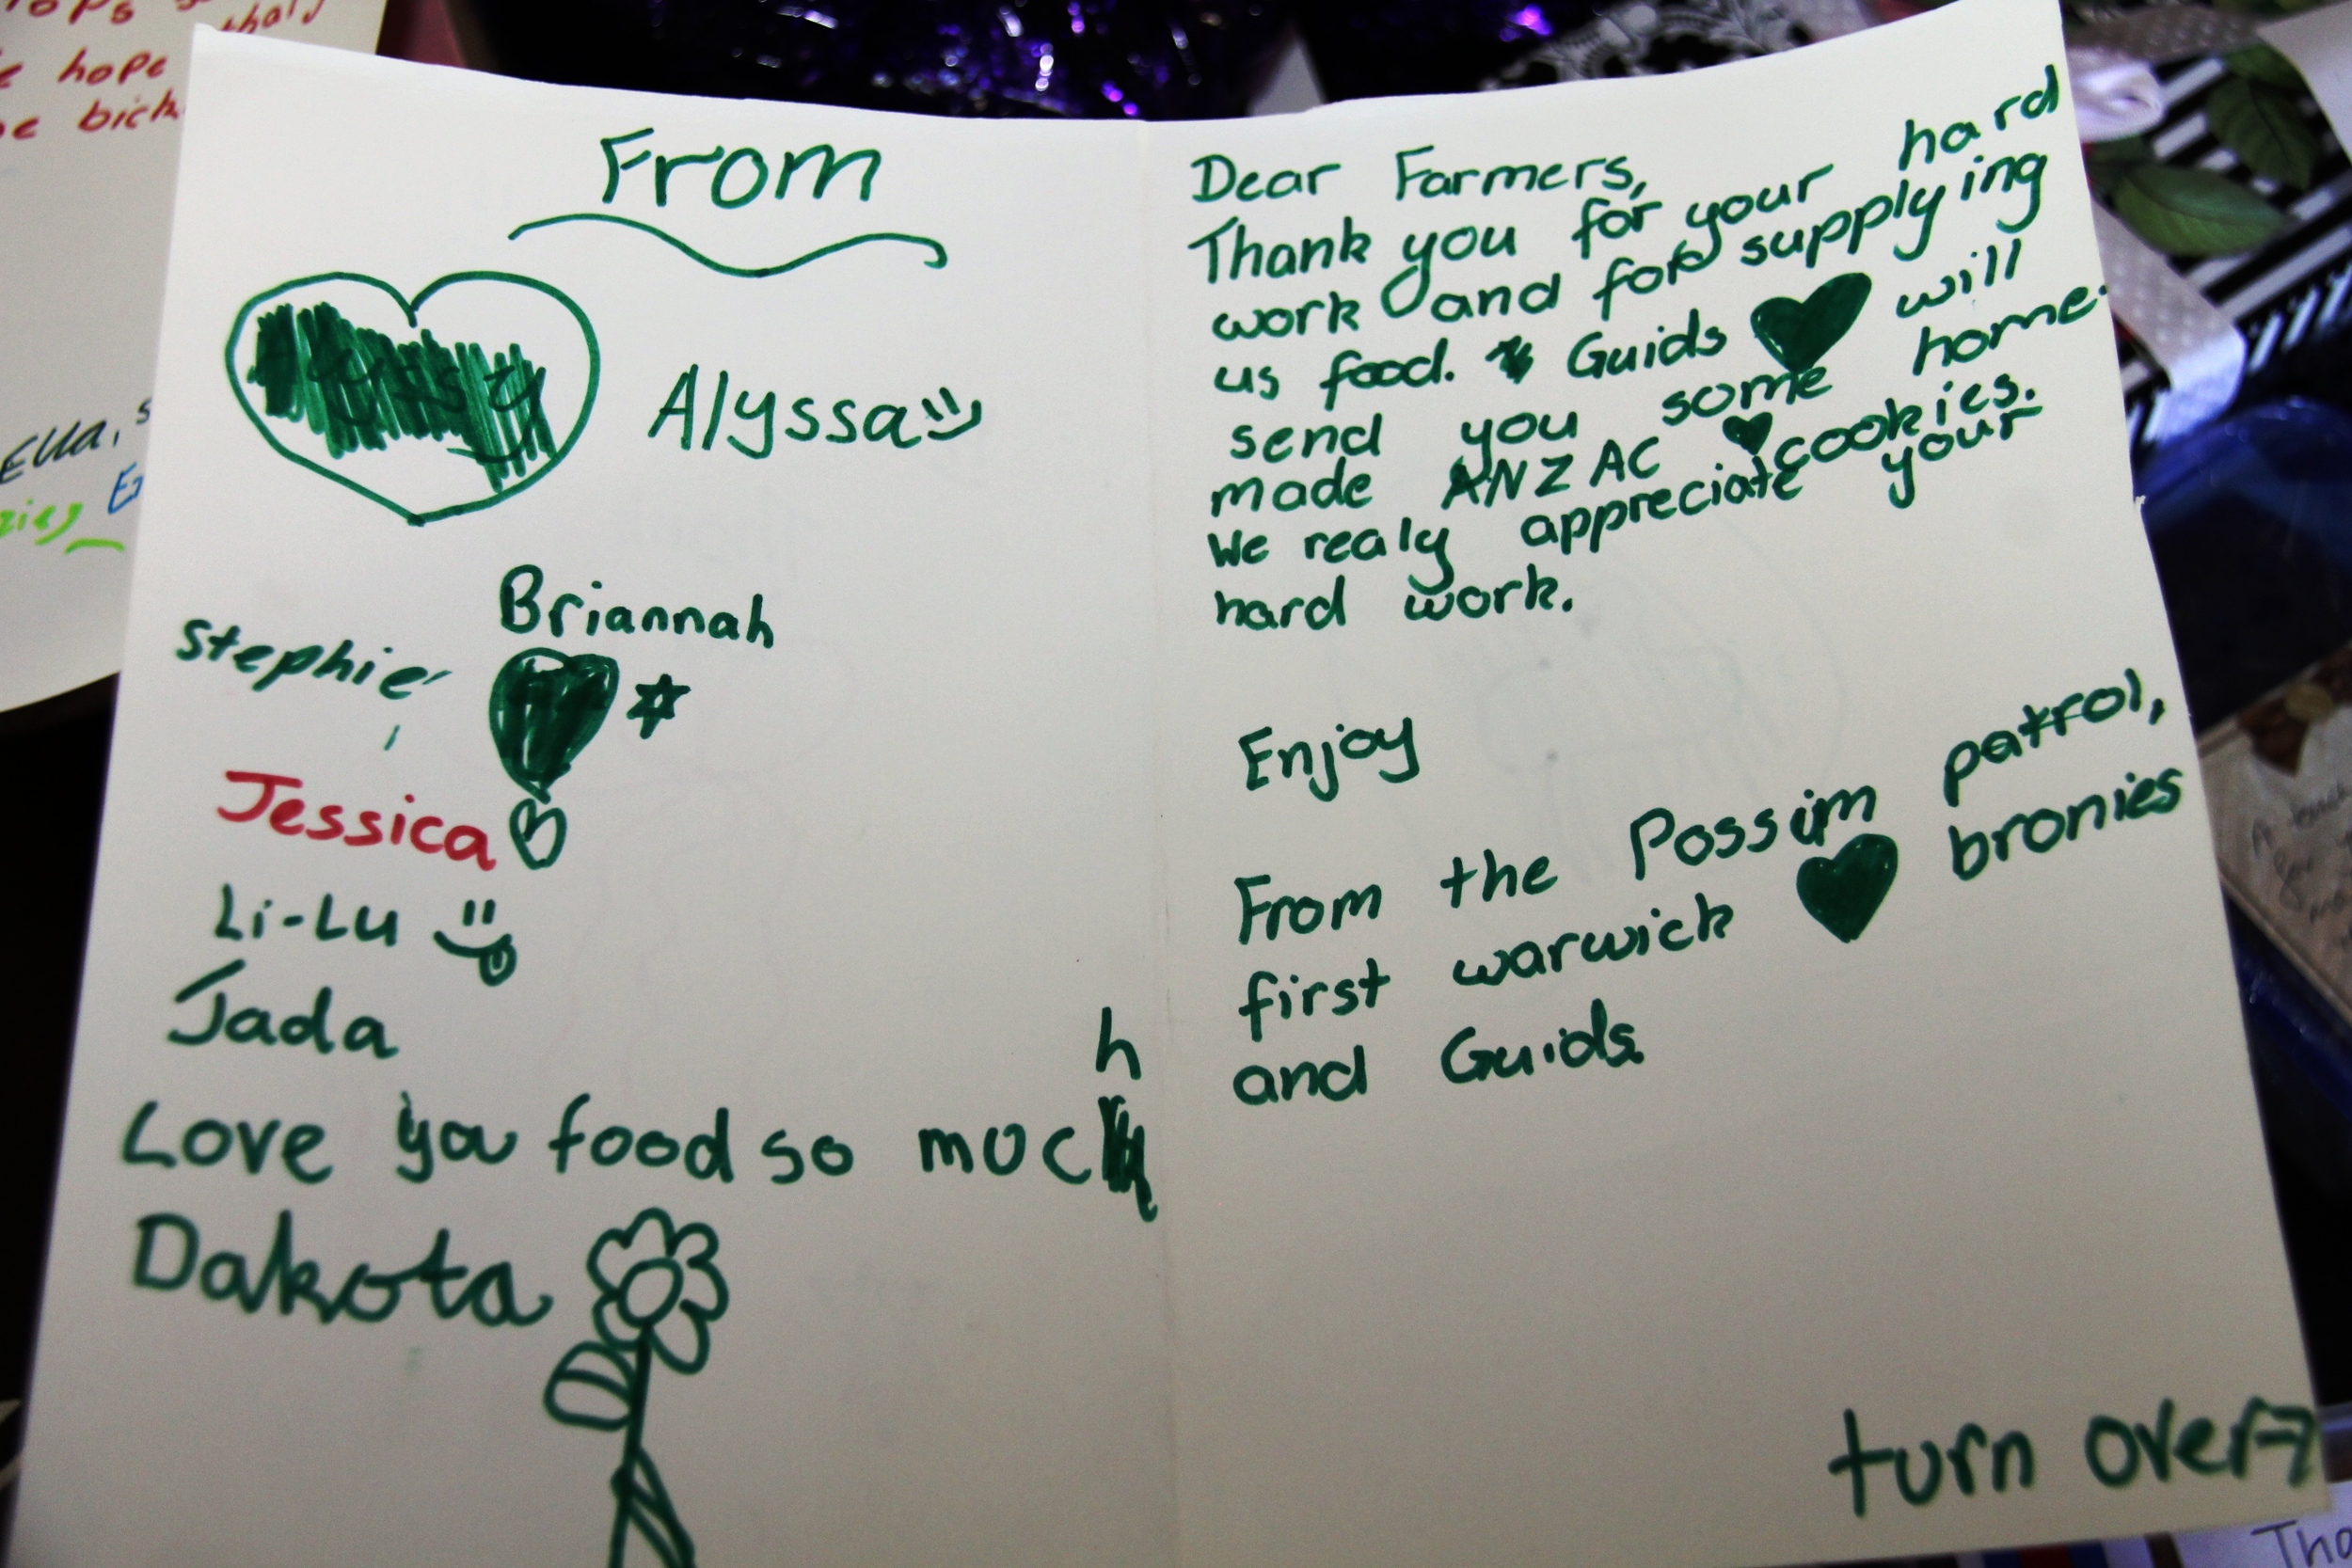 From
Alyssa
Briannah
Stephie
Jessica
Li-Lu
Jada
Love you food so moch
Dakota
Dear Farmers,
Thank you for your hard
work and for supplying
us food. Guids will
send you some home
made ANZAC cookies.
We realy appreciate your
hard work.
Enjoy
From the Possim patrol,
first warwick bronies
and Guids
turn over
hope
Ella,